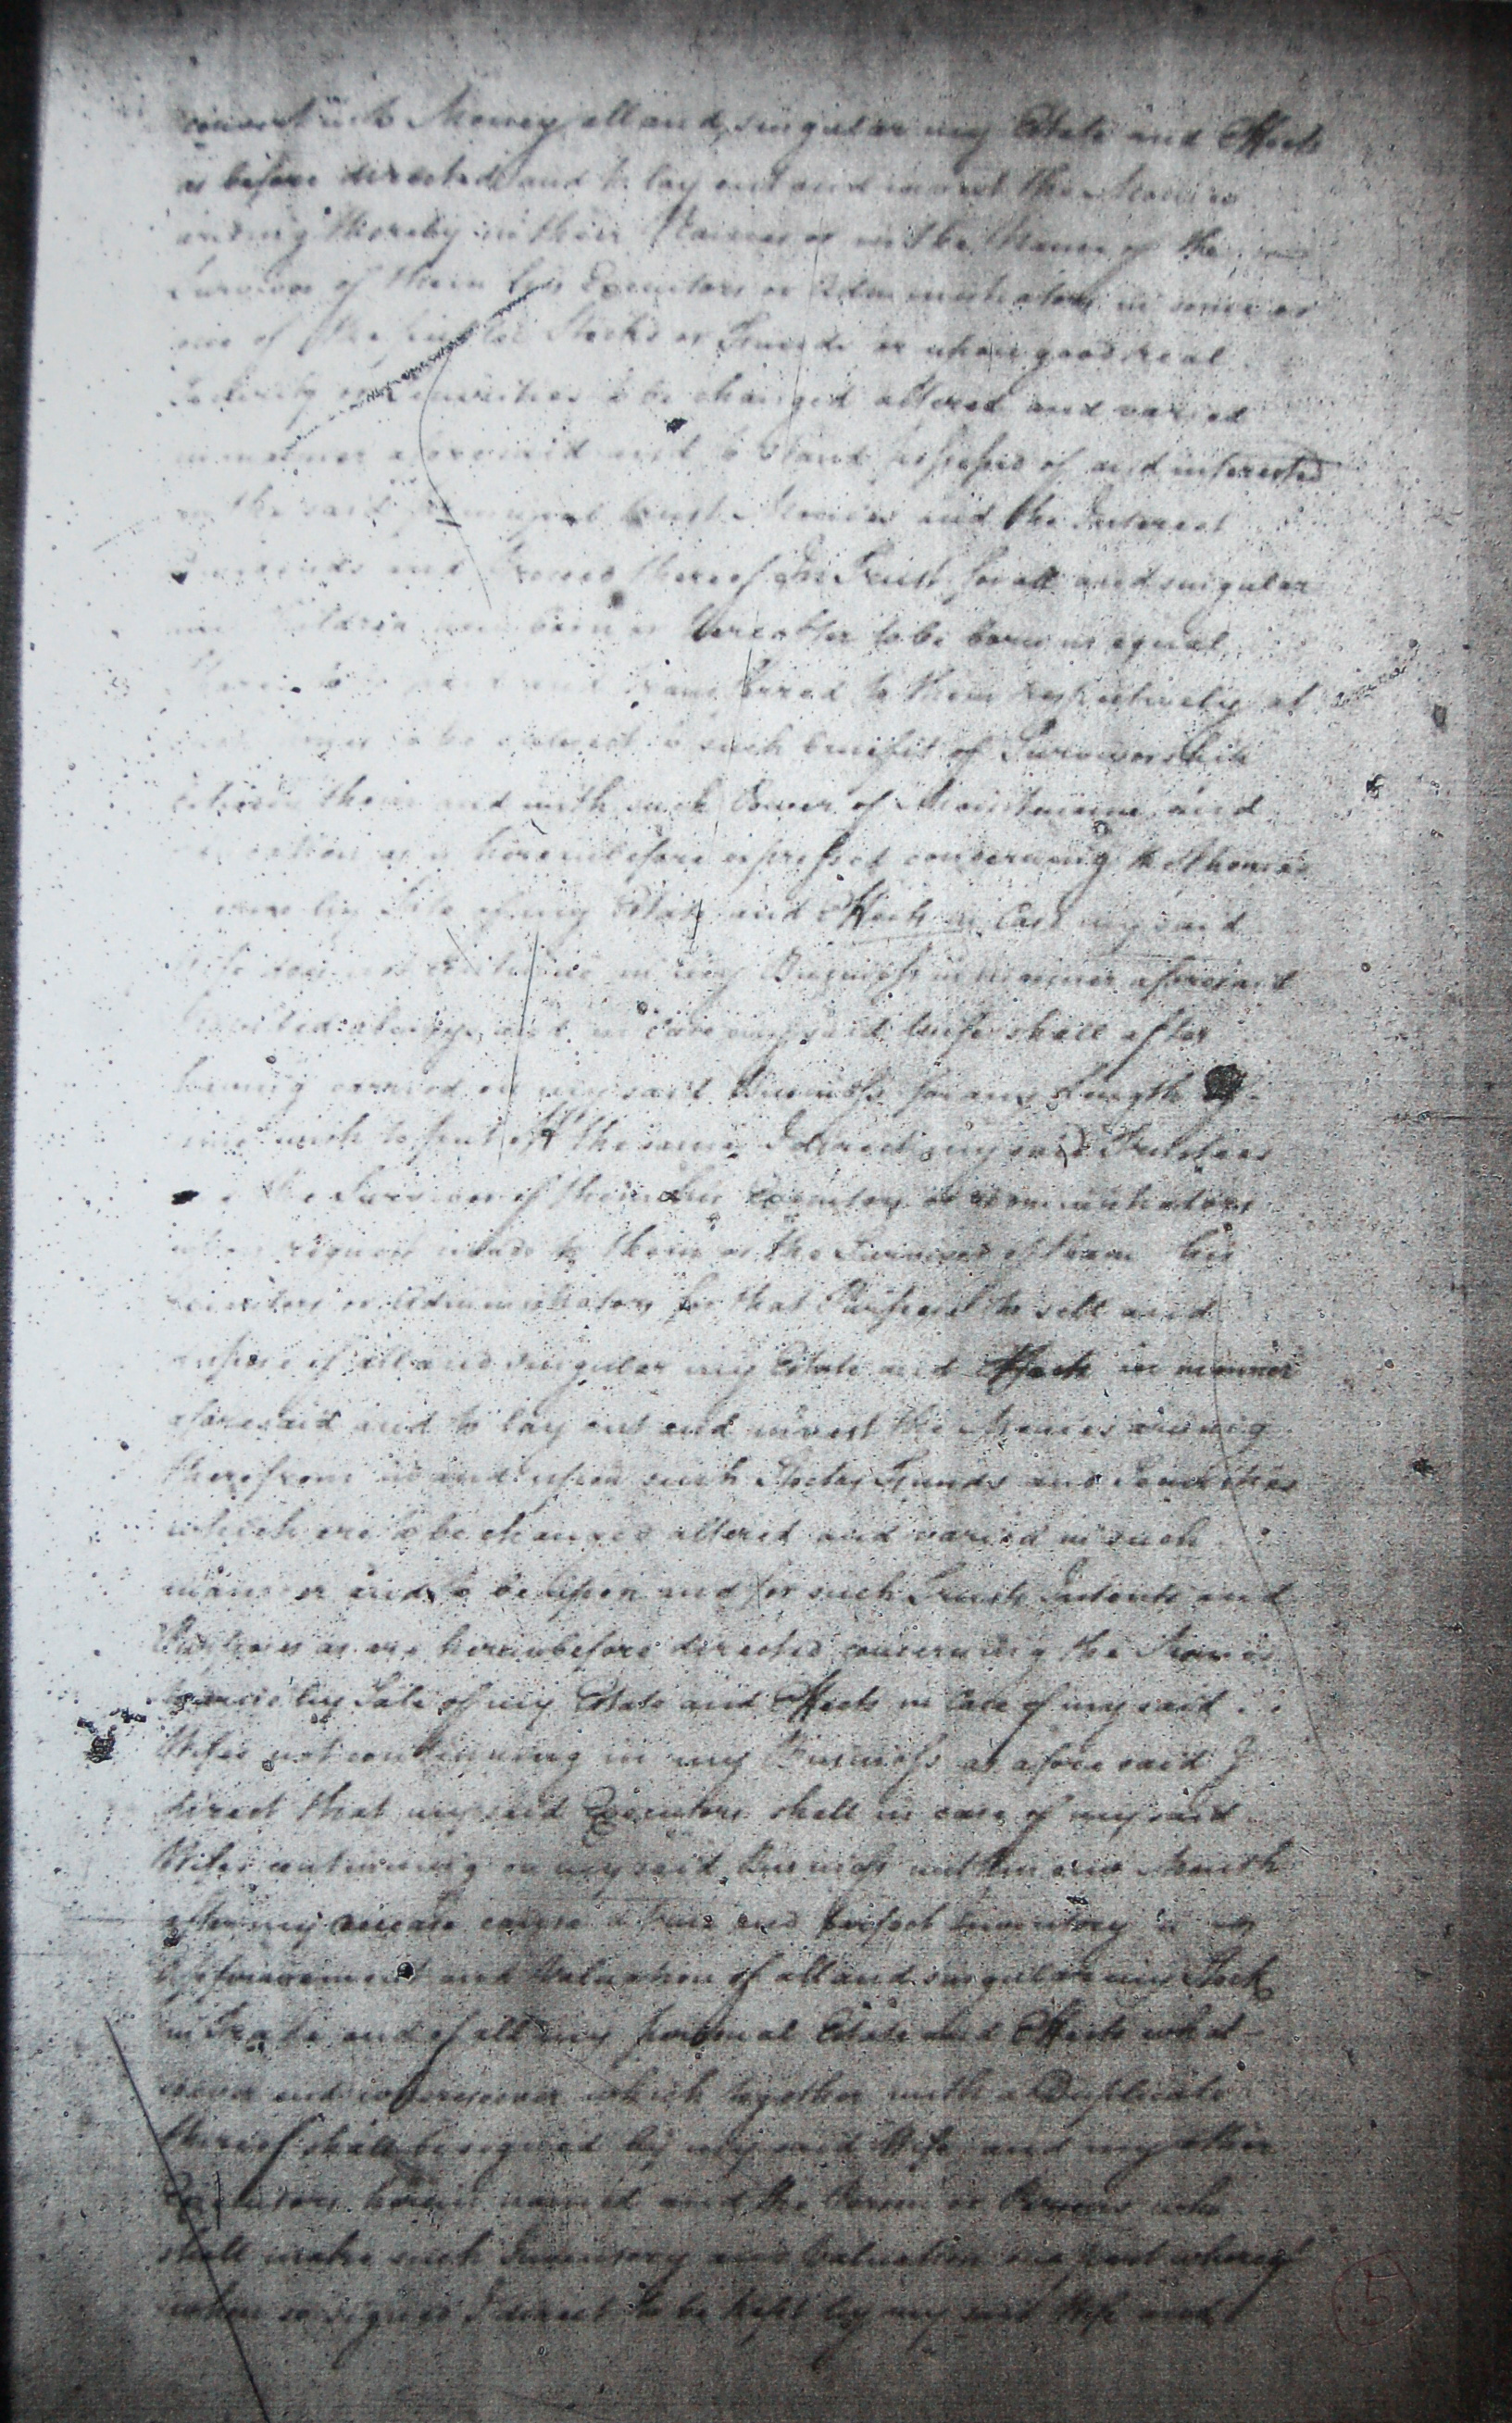 convert into Money all and singular my Estate and Effects
as before directed and to lay out and invest the Monies
arising thereby in their Names or in the Name of the
Survivor of them his Executors or Administrators in some or
one of the public Stocks or Funds or upon good real
Security or Securities to be changed altered and varied
in manner aforesaid and to stand possessed of and interested
in the said principal trust Monies and the Interest
Dividends and Produce thereof In Trust for all and singular
my Children now born or hereafter to be born in equal
Shares to be paid and transferred to them respectively at
to be subject to such benefit of Survivorship
between them and with such Power of Maintenance and
Education as is hereinbefore expressed concerning the Monies
arise by Sale of my Estate and Effects in Case my said
Wife does not continue in my Business in manner aforesaid
and in Case my said Wife shall after
having carried on my said Business for any Length of
time wish to put off the same I direct my said Trustees
or the Survivor of them his Executors or Administrators
upon request made to them or the Survivor of them his
Executors or Administrators for that Purpose to sell and
dispose of all and singular my Estate and Effects in manner
aforesaid and to lay out and invest the Monies arising
therefrom in and upon such Stocks Funds and Securities
which are to be changed altered and varied in such
manner and to be upon and for such Trusts Intents and
Purposes as are hereinbefore directed concerning the Monies
to arise by Sale of my Estate and Effects in Case of my said
Wifes not continuing in my Business as aforesaid I
direct that my said Executors shall in case of my said
Wifes continuing on my said Business within one Month
after my decease cause a true and perfect Inventory
Appraisement and Valuation of all and singular my Stock
in Trade and of all my personal Estate and Effects what-
soever and wheresoever which together with a Duplicate
thereof shall be signed by my said Wife and my other
Executors herein named and the Person or Persons who
shall make such Inventory and Valuation one part whereof
when so signed I direct to be kept by my said Wife and
5